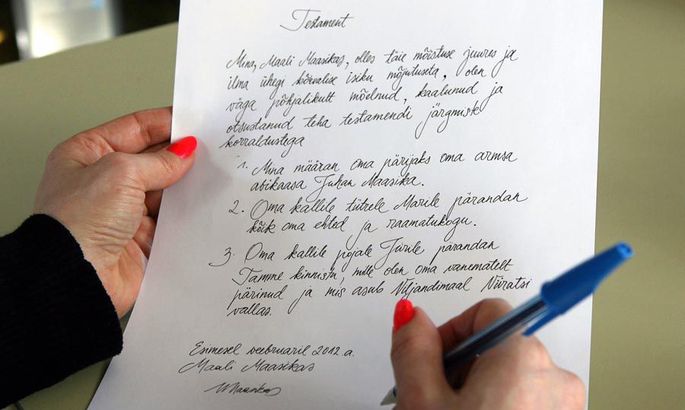 Testament
Mina, Maali Maasikas, olles täie mõistuse juures ja
ilma ühegi kõrvalise isiku mõjutuseta, olen
väga põhjalikult mõelnud, kaalunud ja
otsustanud teha testamendi järgmiste
korraldustega
1. Mina määran oma pärijaks oma armsa
abikaasa Juhan Maasika.
2. Oma kallile tütrele Marile pärandan
kõik oma ehted ja raamatukogu.
3. Oma kallile pojale Jürile pärandan
Tamme kinnistu, mille olen oma vanematelt
pärinud ja mis asub Viljandimaal Nuratsi
vallas.
Esimesel veebruaril 2012.a.
Maali Maasikas
MMaasikas